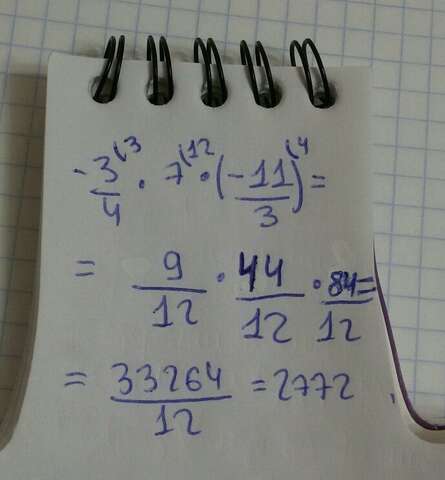 -3/4 (3 · 7 (12 · (-11/3) (4 =
= 9/12 · 44/12 · 84/12 =
= 33264/12 = 2772